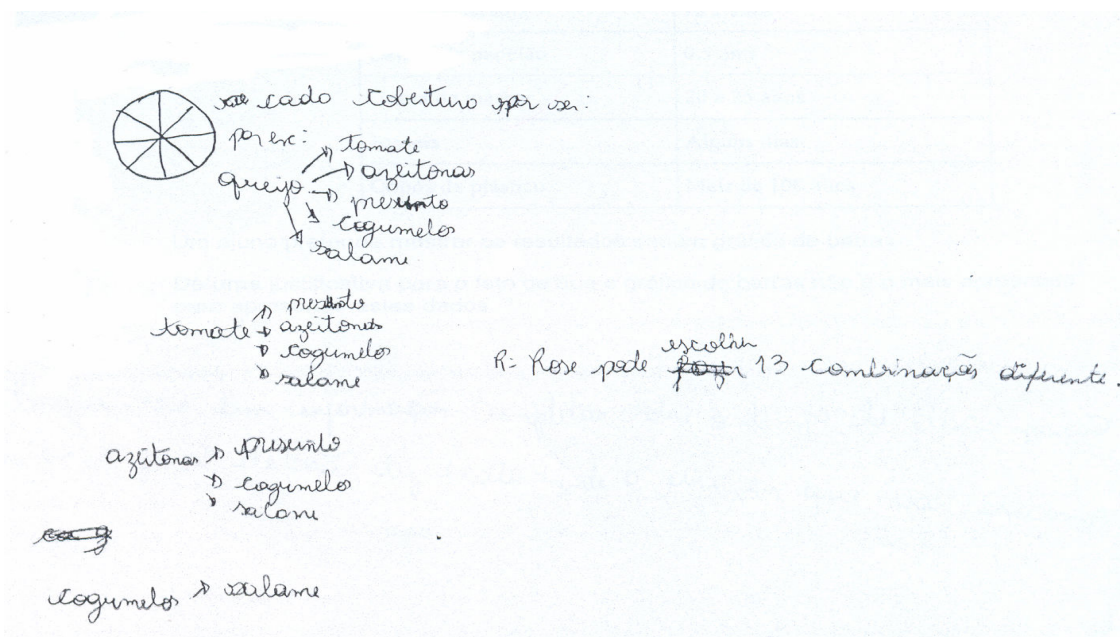 cada cobertura por ser:
por ex:
queijo → tomate
→ azeitonas
→ presunto
→ cogumelos
→ salame
tomate → presunto
→ azeitonas
→ cogumelos
→ salame
R: Rose pode escolher 13 combinações diferente.
azeitonas → presunto
→ cogumelos
→ salame
cogumelos → salame